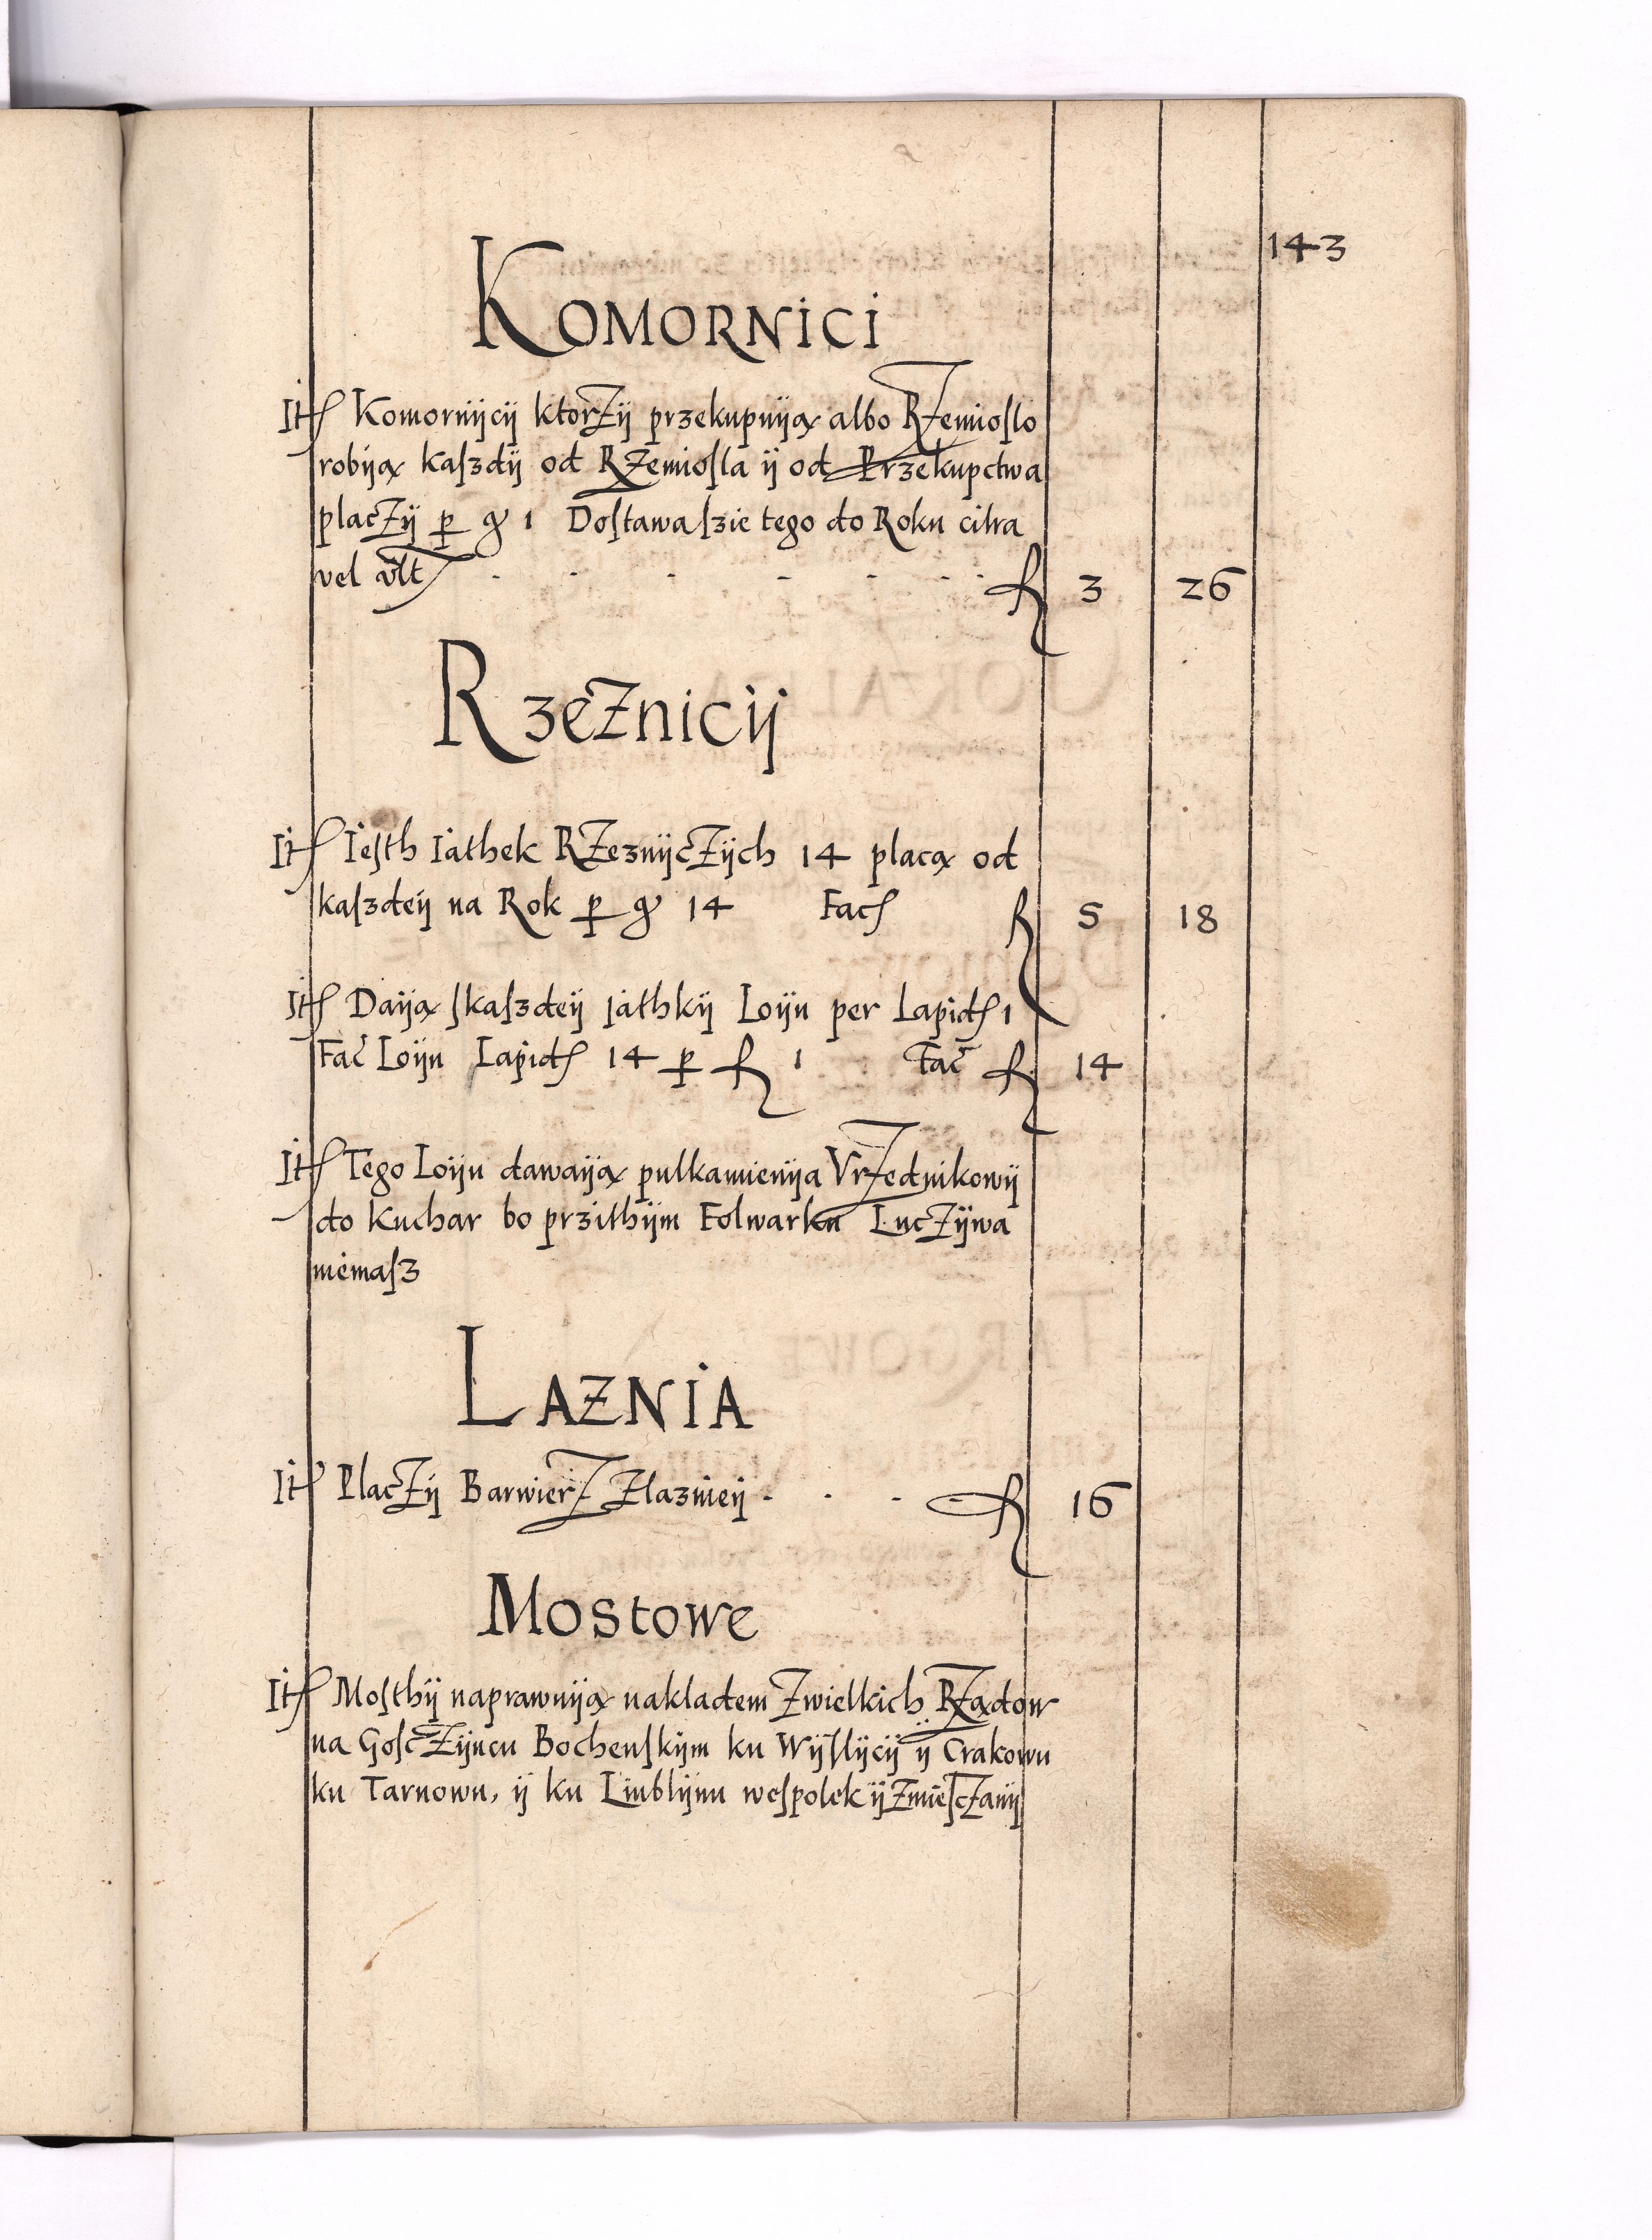 143
Komornici
Itꝭ Komornÿcÿ ktorZÿ przekupuÿą albo RZemioſlo
robÿą kaſzdÿ od RZemioſla ÿ od Przekupctwa
placZÿ ꝑ gꝛ 1 Doſtawaſzie tego do Roku citra
vel vlt - - - - - - - fl 3 26
RzeZnicÿ
Itꝭ Ieſth Iathek RZeznÿcZÿch 14 placą od
kaſzdeÿ na Rok ꝑ gꝛ 14 Facꝭ fl 5 18
Itꝭ Daÿą ſkaſzdeÿ Iathkÿ Loÿu per Lapidꝭ 1
Fac̃ Loÿu Lapidꝭ 14 ꝑ fl 1 Fac̃ fl 14
Itꝭ Tego Loÿu dawaÿą pulkamienÿa VrZednikowÿ
do kuchar bo przithÿm Folwarku LucZÿwa
niemaſz
LAZNIA
Itꝭ PlacZÿ BarwierZ Zlaznieÿ - - - fl 16
Mostowe
Itꝭ Moſthÿ naprawuÿą nakladem Zwielkich RZądow
na GoſcZÿncu Bochenſkÿm ku Wÿſlÿcÿ ÿ Crakowu
ku Tarnowu, ÿ ku Lublÿnu weſpolek ÿ ZmieſcZanÿ